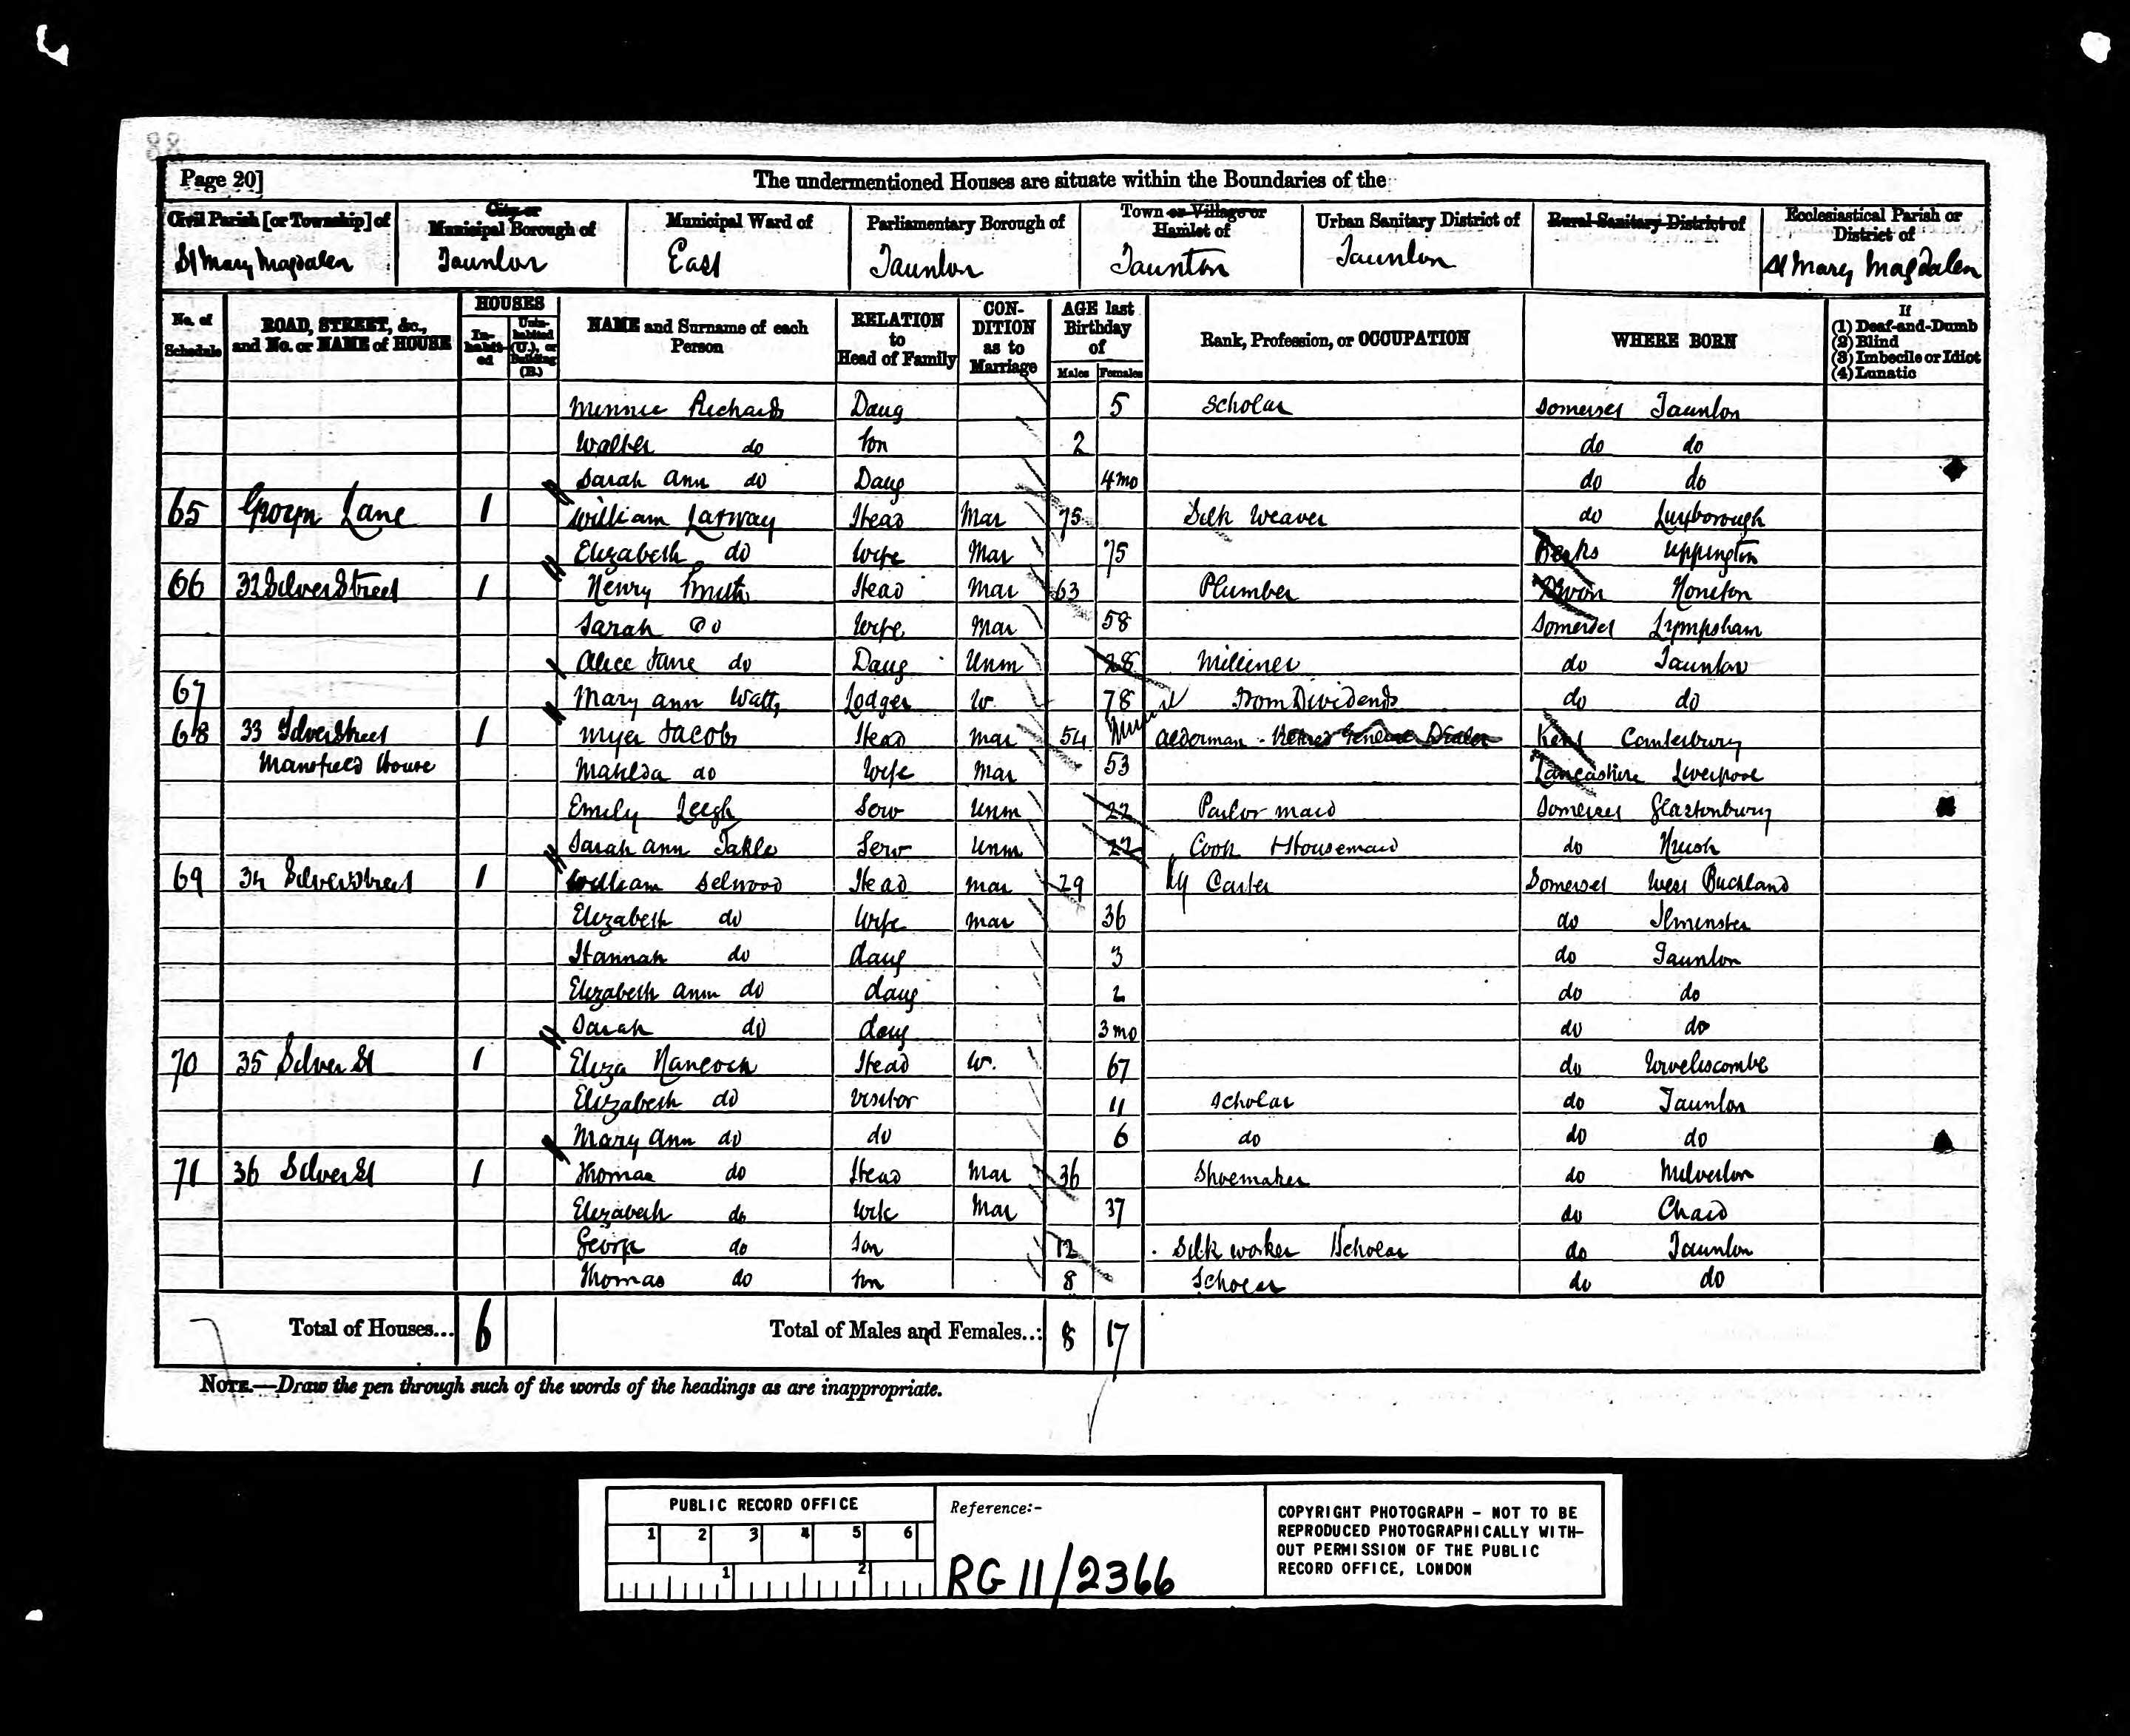 88
Page 20]
The undermentioned Houses are situate within the Boundaries of the
Civil Parish [or Township] of
City or Municipal Borough of
Municipal Ward of
Parliamentary Borough of
Town or Village or Hamlet of
Urban Sanitary District of
Rural Sanitary District of
Ecclesiastical Parish or District of
St Mary Magdalen Taunton East Taunton Taunton Taunton St Mary Magdalen
No. of Schedule
ROAD, STREET, &c., and No. or NAME of HOUSE
HOUSES
In-habit-ed
Unin-habited (U.), or Building (B.)
NAME and Surname of each Person
RELATION to Head of Family
CON-DITION as to Marriage
AGE last Birthday of
Males Females
Rank, Profession, or OCCUPATION
WHERE BORN
If
(1) Deaf-and-Dumb
(2) Blind
(3) Imbecile or Idiot
(4) Lunatic
Minnie Richards Daug 5 Scholar Somerset Taunton
Walter do Son 2 do do
Sarah Ann do Daug 4mo do do
65 Lane 1 William Larway Head Mar 75 Silk Weaver do Luxborough
Elizabeth do Wife Mar 75 Berks Uppington
66 32 Silver Street 1 Henry Smith Head Mar 63 Plumber Devon Honiton
Sarah do Wife Mar 58 Somerset Lympsham
Alice Jane do Daug Unm 28 Milliner do Taunton
67 Mary Ann Watts Lodger W 78 From Dividends do do
68 33 Silver Street 1 Myer Jacobs Head Mar 54 Alderman - Retired General Dealer Kent Canterbury
Mansfield House Matilda do Wife Mar 53 Lancashire Liverpool
Emily Leigh Serv Unm 22 Parlor maid Somerset Glastonbury
Sarah Ann Takle Serv Unm 22 Cook & Housemaid do
69 34 Silver Street 1 William Selwood Head Mar 29 Ry Carter Somerset West Buckland
Elizabeth do Wife Mar 36 do Ilminster
Hannah do daug 3 do Taunton
Elizabeth Ann do daug 2 do do
Sarah do daug 3mo do do
70 35 Silver St 1 Eliza Hancock Head W. 67 do Wiveliscombe
Elizabeth do Visitor 11 Scholar do Taunton
Mary Ann do do 6 do do do
71 36 Silver St 1 Thomas do Head Mar 36 Shoemaker do Milverton
Elizabeth do Wife Mar 37 do Chard
George do Son 12 Silk worker Scholar do Taunton
Thomas do Son 8 Scholar do do
Total of Houses... 6 Total of Males and Females... 8 17
NOTE.—Draw the pen through such of the words of the headings as are inappropriate.
PUBLIC RECORD OFFICE
1 2 3 4 5 6
1 2
Reference:-
RG 11/2366
COPYRIGHT PHOTOGRAPH - NOT TO BE
REPRODUCED PHOTOGRAPHICALLY WITH-
OUT PERMISSION OF THE PUBLIC
RECORD OFFICE, LONDON